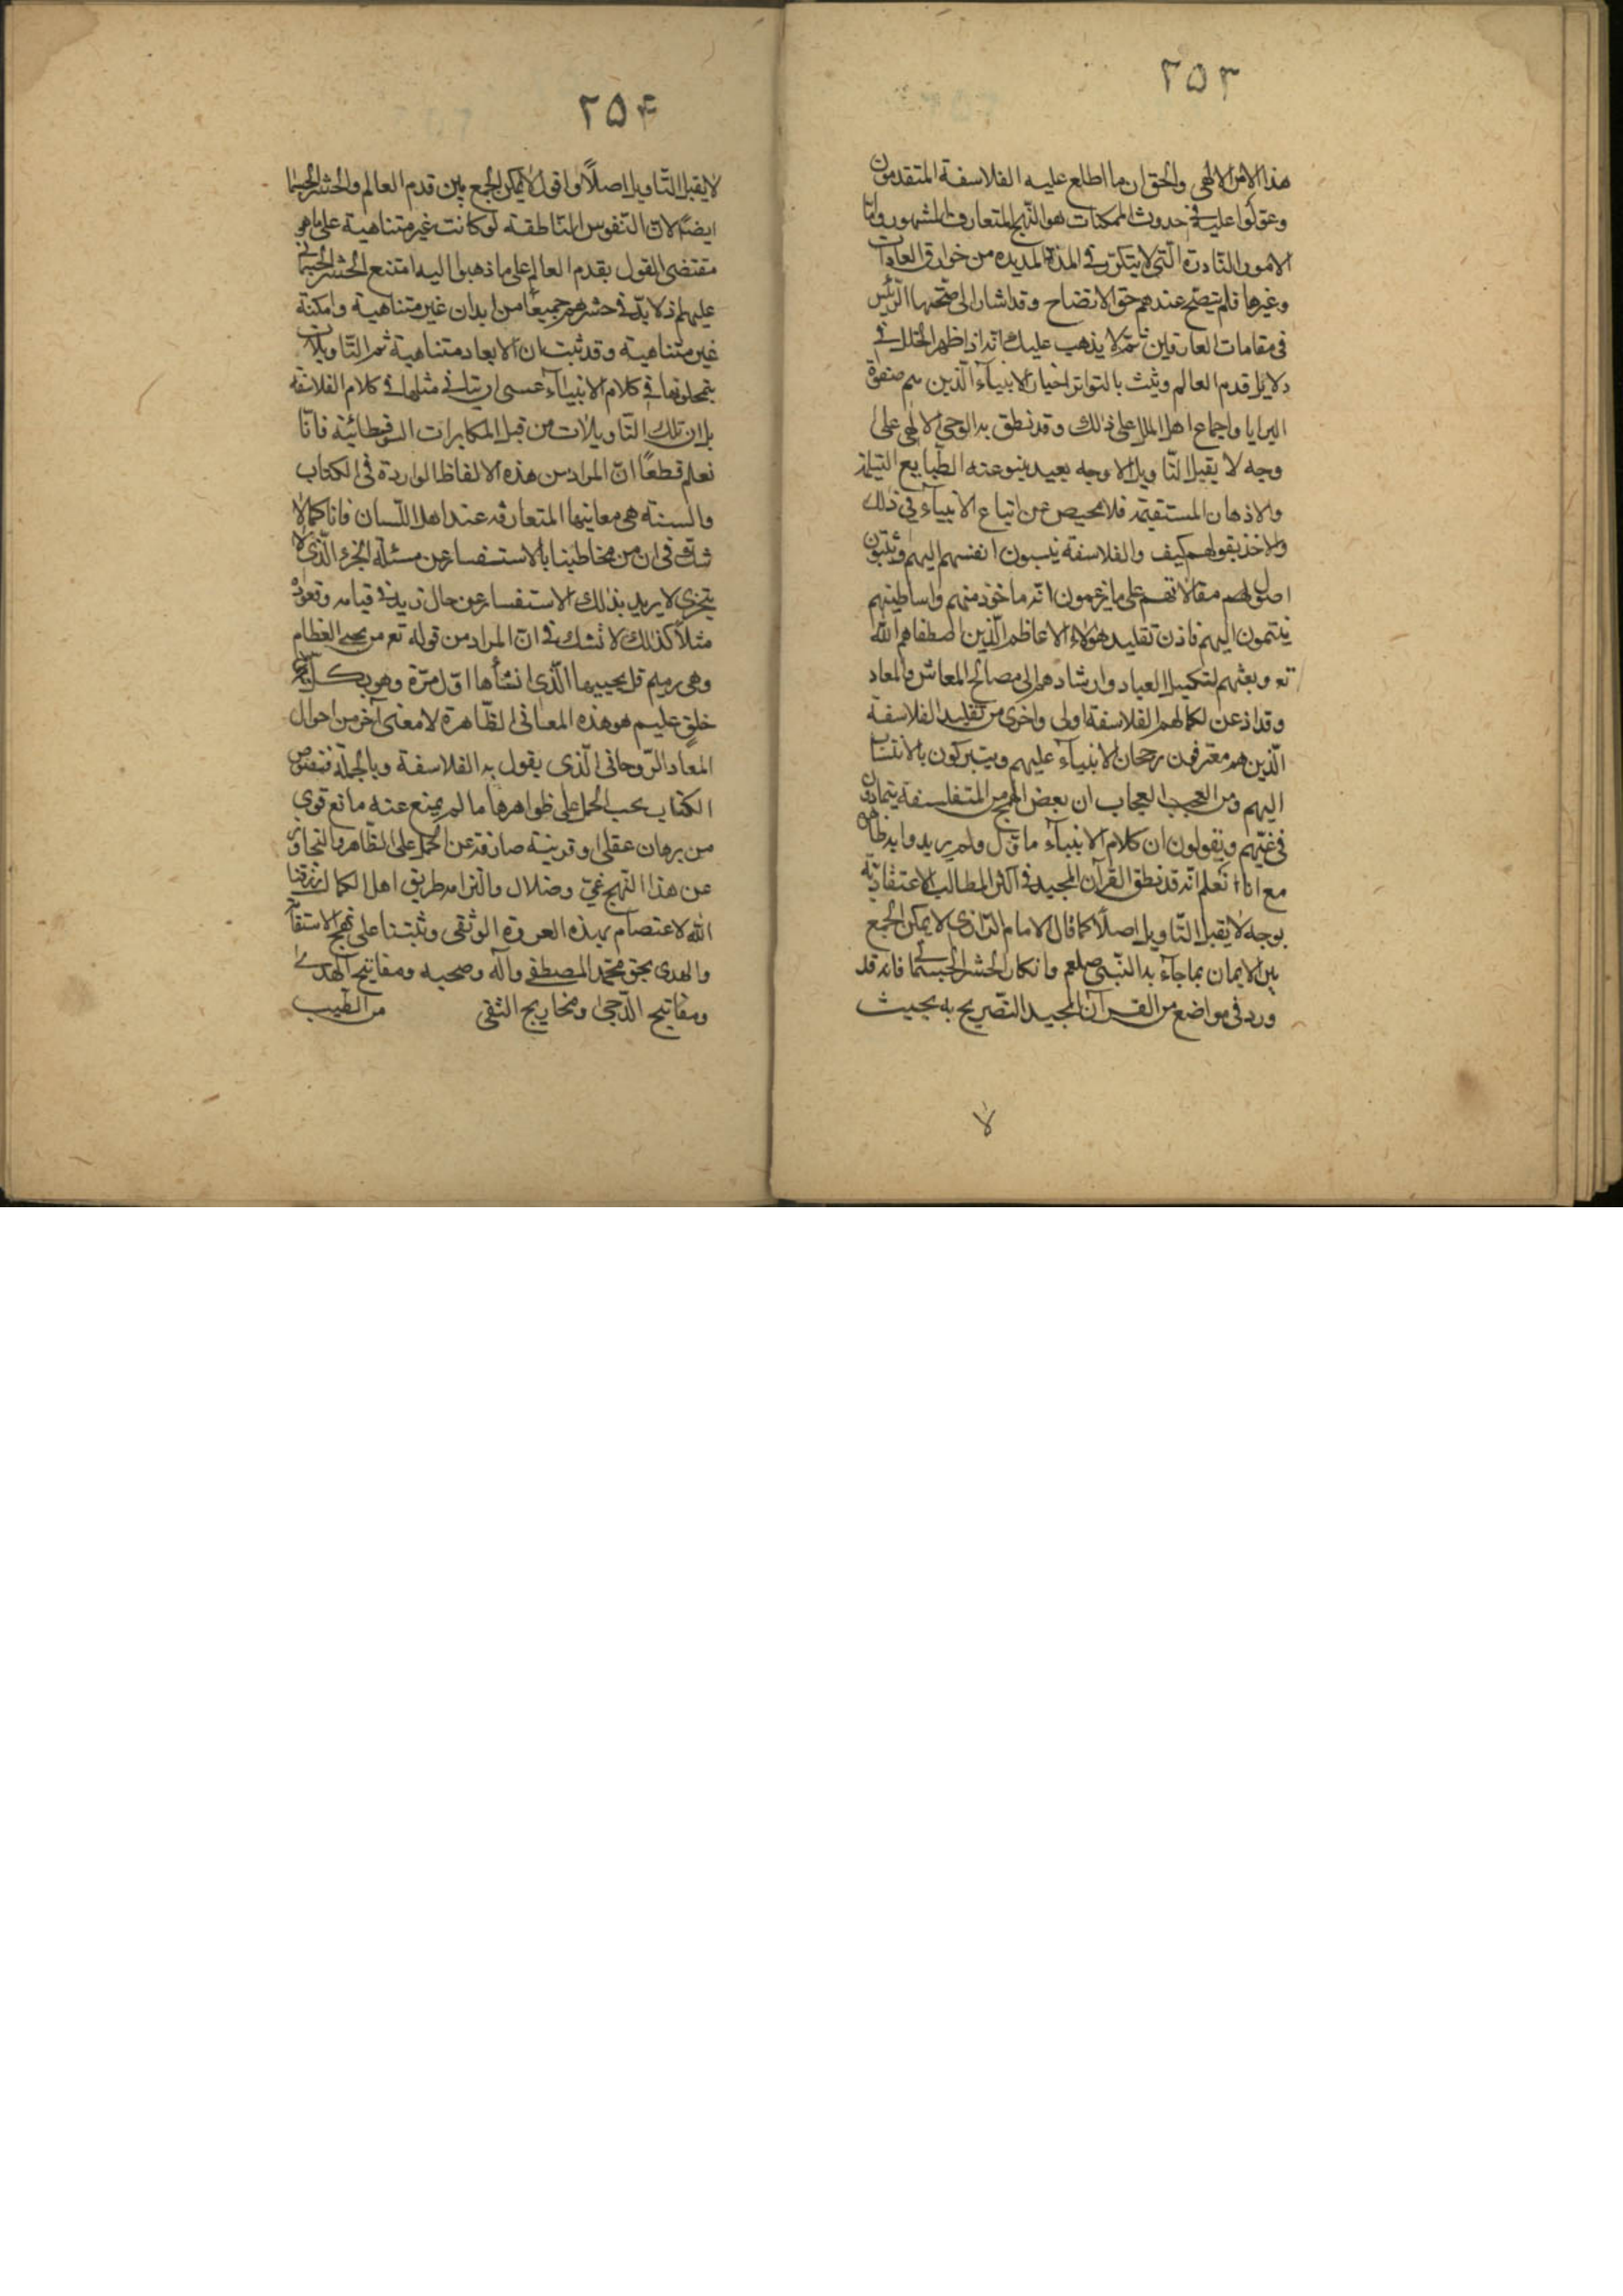 ٢٥٣
هذا الامر الالهى والحق ان ما اطلع عليه الفلاسفة المتقدمون
وعولوا عليه فى حدوث الممكنات هو النهج المتعارف المشهور واما
الامور النادرة التى لا يتكرر فى المدة المديدة من خوارق العادات
وغيرها فلم يتضح عندهم حق الاتضاح وقد اشار الى صحتها الرئيس
فى مقامات العارفين ثم لا يذهب عليك انه اذا ظهر الخلل فى
دلايل قدم العالم وثبت بالتواتر اخبار الانبيآء الذين هم صفوة
البرايا واجماع اهل الملل على ذلك وقد نطق به الوحى الالهى على
وجه لا يقبل التأويل الا وجه بعيد ينبو عنه الطبايع السليمة
والاذهان المستقيمة فلا محيص عن اتباع الانبيآء فى ذلك
والاخذ بقولهم كيف والفلاسفة ينسبون انفسهم اليهم وينسبون
اصول مقالاتهم على ما يزعمون انه ماخوذ منهم واساطينهم
ينتمون اليهم فاذن تقليد هؤلاء الاعاظم الذين اصطفاهم الله
تع وبعثهم لتكميل العباد وارشادهم الى مصالح المعاش والمعاد
وقد اذعن لكمالهم الفلاسفة اولى واحرى من تقليد الفلاسفة
الذين هم معترفون رجحان الانبيآء عليهم ويتبركون بالانتساب
اليهم ومن العجب العجاب ان بعض المتفلسفة يتمادون
فى غيهم ويقولون ان كلام الانبيآء مأول ولم يريدوا به ظاهره
مع انا نعلم انه قد نطق القرآن المجيد فى اكثر المطالب الاعتقادية
بوجه لا يقبل التأويل اصلًا كما قال الامام الرازى لا يمكن الجمع
بين الايمان بما جآء به النبى صلعم وانكار الحشر الجسمانى فانه قد
ورد فى مواضع من القرآن المجيد التصريح به بحيث
لا
٢٥۴
لا يقبل التأويل اصلًا واقول لا يمكن الجمع بين قدم العالم والحشر الجسمانى
ايضًا لان النفوس الناطقة لو كانت غير متناهية على ما هو
مقتضى القول بقدم العالم على ما ذهبوا اليه امتنع الحشر الجسمانى
عليهم اذ لا بد فى حشرهم جميعًا من ابدان غير متناهية وامكنة
غير متناهية وقد ثبت ان الابعاد متناهية ثم التأويلات
يتمحلونها فى كلام الانبيآء عسى ان يتأتى مثلها فى كلام الفلاسفة
بل ان تلك التأويلات من قبل المكابرات السوفسطائية فانا
نعلم قطعًا ان المراد من هذه الالفاظ الواردة فى الكتاب
والسنة هى معانيها المتعارفة عند اهل اللسان فانا كما لا
نشك فى ان من مخاطبنا بالاستفسار عن مسئلة الجزء الذى لا
يتجزى لا يريد بذلك الاستفسار عن حال زيد فى قيامه وقعوده
مثلًا كذلك لا نشك فى ان المراد من قوله تع من يحيى العظام
وهى رميم قل يحييها الذى انشأها اول مرة وهو بكل
خلق عليم هو هذه المعانى الظاهرة لا معنى آخر من احوال
المعاد الروحانى الذى يقول به الفلاسفة وبالجملة فنصوص
الكتاب يجب الحمل على ظواهرها ما لم يمنع عنه مانع قوى
من برهان عقلى او قرينة صارفة عن الحمل على الظاهر والتجاوز
عن هذا النهج غى وضلال والتزامه طريق اهل الكمال رزقنا
الله الاعتصام بهذه العروة الوثقى وثبتنا على نهج الاستقامة
والهدى بحق محمد المصطفى وآله وصحبه ومفاتيح الهدى
ومفاتيح الدجى ومخاريج التقى من الطيب